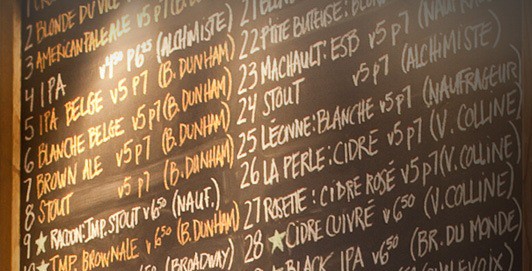 2 BLONDE DU VICE v5 p7
3 AMERICAN PALE ALE v5 p7
4 IPA v4.50 p6.25 (ALCHIMISTE)
5 IPA BELGE v5 p7 (B. DUNHAM)
6 BLANCHE BELGE v5 p7 (B. DUNHAM)
7 BROWN ALE v5 p7 (B. DUNHAM)
8 STOUT v5 p7 (B. DUNHAM)
9 ★ RACOON: IMP. STOUT v6.50 (NAUF.)
★ IMP. BROWN ALE v6.50 (B. DUNHAM)
(BROADWAY)
21
22 P'TITE BUTEUSE: (NAUFRA
23 MACHAULT: ESB v5 p7 (ALCHIMISTE)
24 STOUT v5 p7 (NAUFRAGEUR)
25 LÉONNE: BLANCHE v5 p7 (V. COLLINE)
26 LA PERLE: CIDRE v5 p7 (V. COLLINE)
27 ROSETTE: CIDRE ROSÉ v5 p7 (V. COLLINE)
28 ★ CIDRE CUIVRÉ v6.50 (BR. DU MONDE)
BLACK IPA v6.50